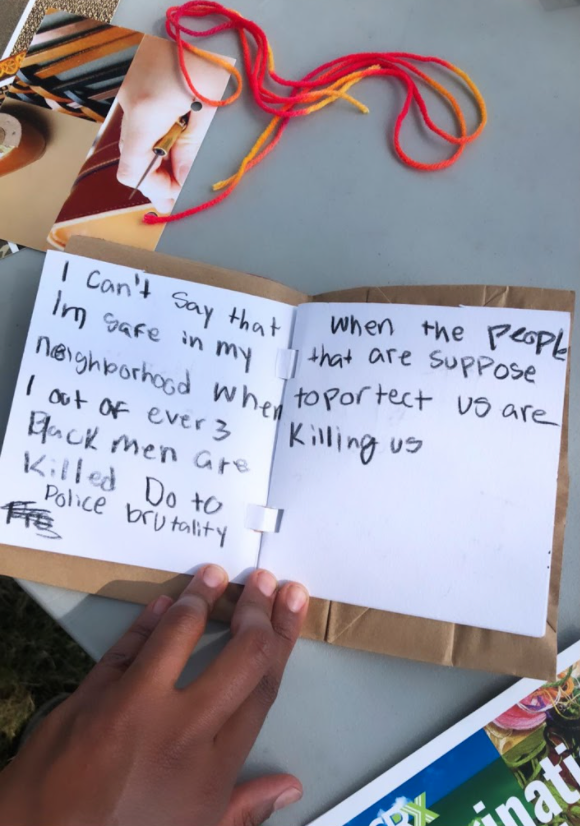 I can't say that
Im safe in my
neighborhood when
1 out of ever 3
Black men are
Killed Do to
Police brutality
When the People
that are suppose
to portect us are
Killing us